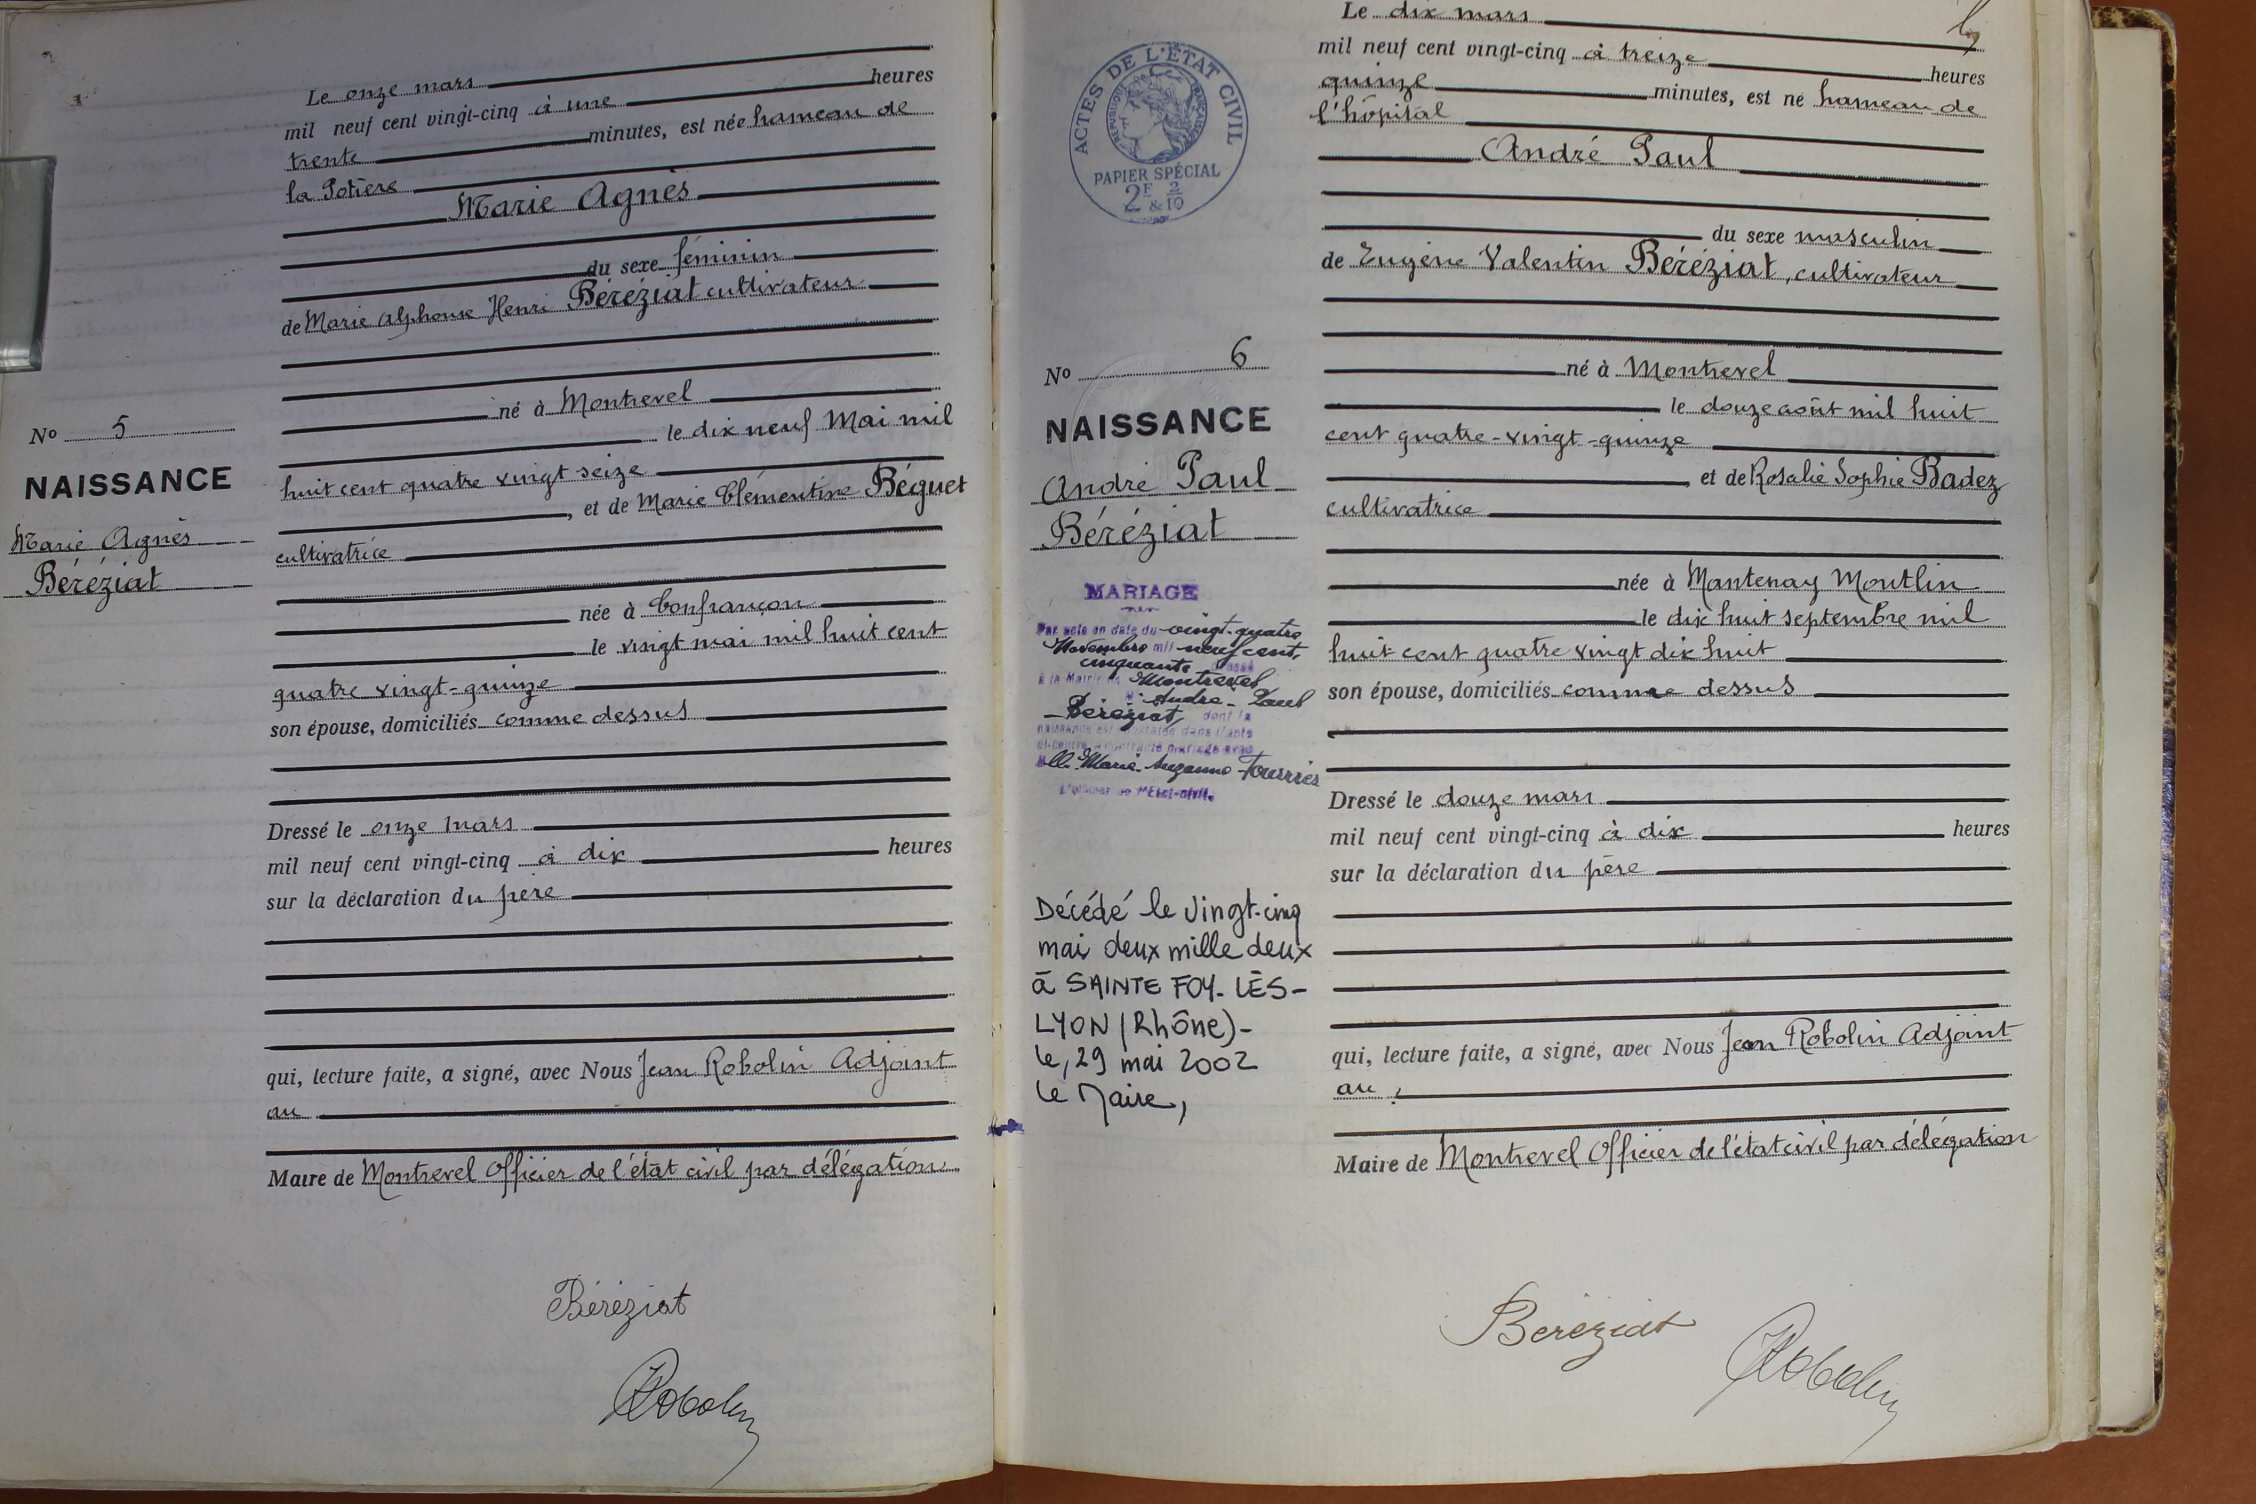 Le onze mars
mil neuf cent vingt-cinq à une heures
trente minutes, est née hameau de
la Potière
Marie Agnès
du sexe féminin
de Marie Alphonse Henri Béréziat cultivateur
né à Montrevel
le dix neuf Mai mil
huit cent quatre vingt seize
, et de Marie Clémentine Béguet
cultivatrice
née à Confrançon
le vingt mai mil huit cent
quatre vingt-quinze
son épouse, domiciliés comme dessus
Dressé le onze mars
mil neuf cent vingt-cinq à dix heures
sur la déclaration du père
qui, lecture faite, a signé, avec Nous Jean Robolin Adjoint
au
Maire de Montrevel Officier de l'état civil par délégation
Béréziat
Robolin
No 5
NAISSANCE
Marie Agnès
Béréziat
ACTES DE L'ÉTAT CIVIL
RÉPUBLIQUE FRANÇAISE
PAPIER SPÉCIAL
2F & 2/10
No 6
NAISSANCE
André Paul
Béréziat
MARIAGE
Par acte en date du vingt-quatre
Novembre mil neuf cent
cinquante
à la Mairie de Montrevel
André-Paul
Béréziat, dont la
naissance est constatée dans l'acte
ci-contre a contracté mariage avec
Mlle Marie-Suzanne Fourrier
L'officier de l'Etat-civil,
Décédé le vingt-cinq
mai deux mille deux
à SAINTE FOY-LÈS-
LYON (Rhône)-
le, 29 mai 2002
le Maire,
Le dix mars
mil neuf cent vingt-cinq à treize heures
quinze minutes, est né hameau de
l'hôpital
André Paul
du sexe masculin
de Eugène Valentin Béréziat, cultivateur
né à Montrevel
le douze août mil huit
cent quatre-vingt-quinze
, et de Rosalie Sophie Badez
cultivatrice
née à Mantenay Montlin
le dix huit septembre mil
huit cent quatre vingt dix huit
son épouse, domiciliés comme dessus
Dressé le douze mars
mil neuf cent vingt-cinq à dix heures
sur la déclaration du père
qui, lecture faite, a signé, avec Nous Jean Robolin Adjoint
au
Maire de Montrevel Officier de l'état civil par délégation
Béréziat
Robolin